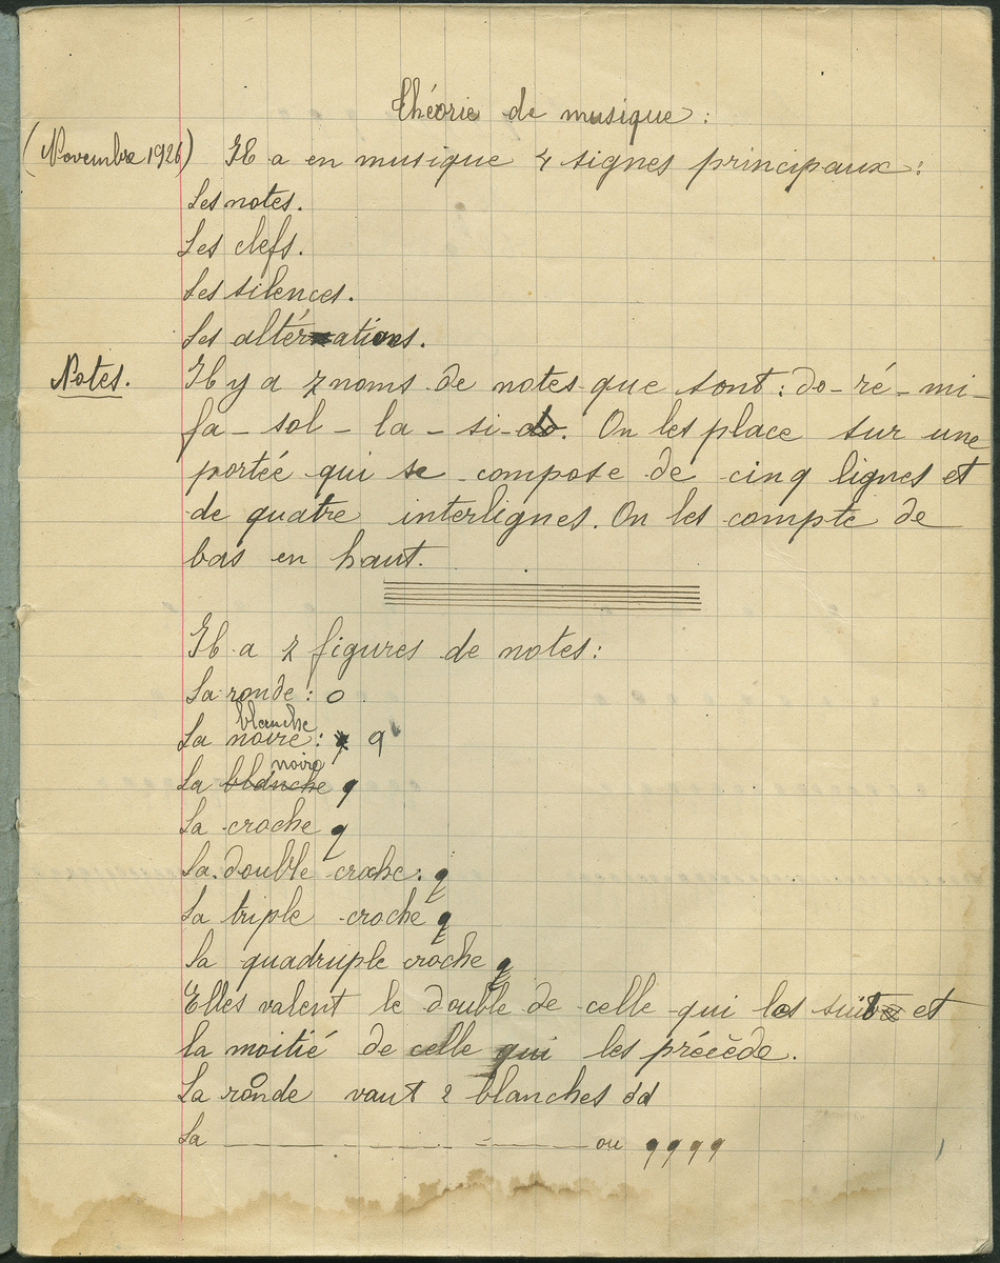 théorie de musique :
(Novembre 1926) Il a en musique 4 signes principaux :
Les notes.
Les clefs.
Les silences.
Les altérations.
Notes. Il y a 7 noms de notes que sont : do - ré - mi -
fa - sol - la - si - do. On les place sur une
portée qui se compose de cinq lignes et
de quatre interlignes. On les compte de
bas en haut.
Il a 7 figures de notes :
La ronde :
blanche
La noire :
noire
La blanche
La croche
La double croche :
La triple croche
La quadruple croche
Elles valent le double de celle qui les suit et
la moitié de celle qui les précède.
La ronde vaut 2 blanches
La ou